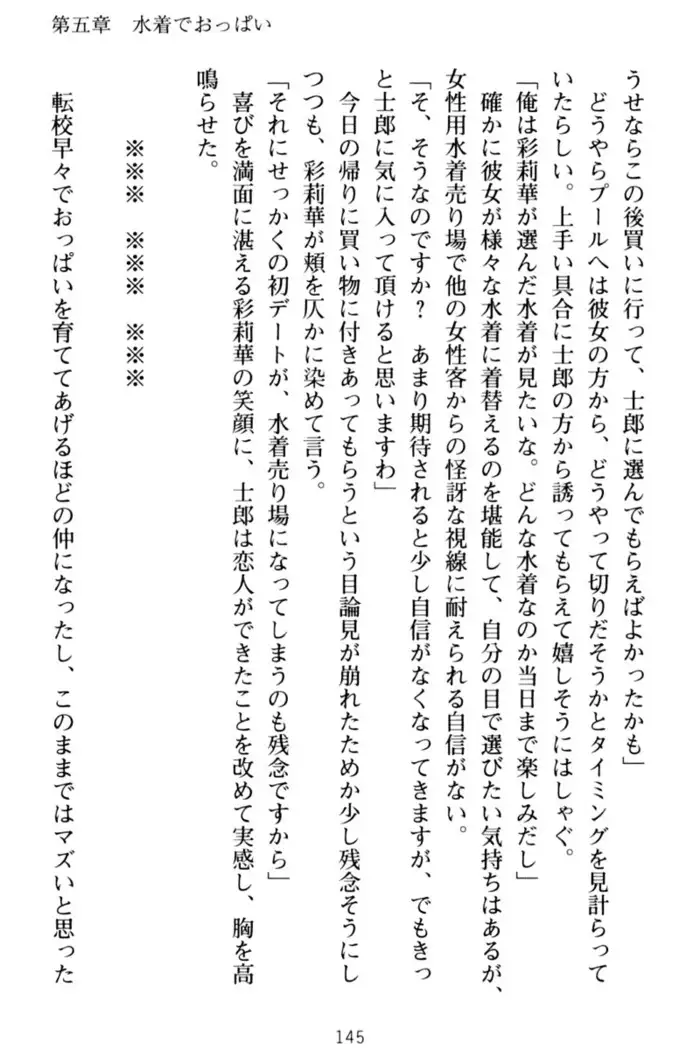 第五章　水着でおっぱい
うせならこの後買いに行って、士郎に選んでもらえばよかったかも」
　どうやらプールへは彼女の方から、どうやって切りだそうかとタイミングを見計らって
いたらしい。上手い具合に士郎の方から誘ってもらえて嬉しそうにはしゃぐ。
「俺は彩莉華が選んだ水着が見たいな。どんな水着なのか当日まで楽しみだし」
　確かに彼女が様々な水着に着替えるのを堪能して、自分の目で選びたい気持ちはあるが、
女性用水着売り場で他の女性客からの怪訝な視線に耐えられる自信がない。
「そ、そうなのですか？　あまり期待されると少し自信がなくなってきますが、でもきっ
と士郎に気に入って頂けると思いますわ」
　今日の帰りに買い物に付きあってもらうという目論見が崩れたためか少し残念そうにし
つつも、彩莉華が頬を仄かに染めて言う。
「それにせっかくの初デートが、水着売り場になってしまうのも残念ですから」
　喜びを満面に湛える彩莉華の笑顔に、士郎は恋人ができたことを改めて実感し、胸を高
鳴らせた。
※※※　※※※　※※※
　転校早々でおっぱいを育ててあげるほどの仲になったし、このままではマズいと思った
145